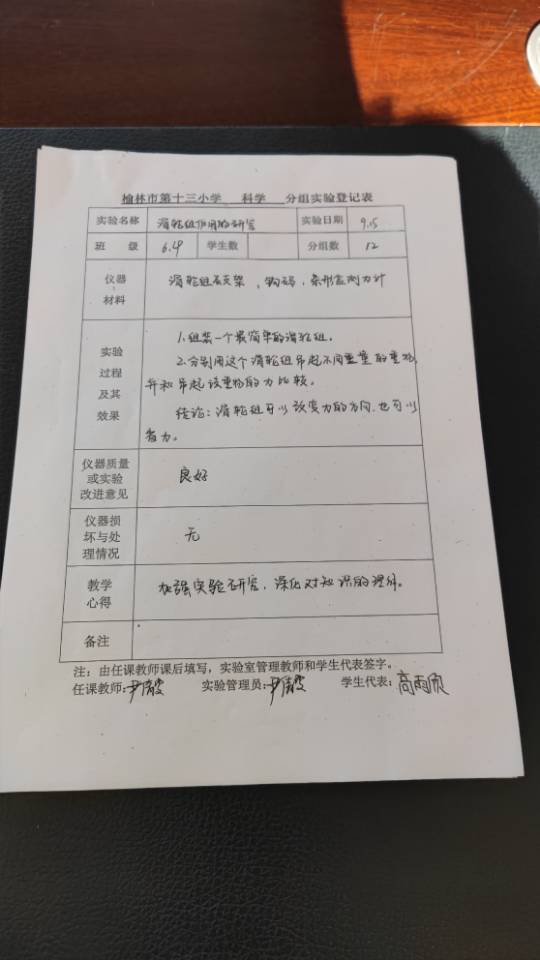 榆林市第十三小学 科学 分组实验登记表
实验名称 滑轮组作用的研究 实验日期 9.15
班 级 6.4 学生数 分组数 12
仪器
材料
滑轮组及支架、钩码、条形盒测力计
实验
过程
及其
效果
1.组装一个最简单的滑轮组。
2.分别用这个滑轮组吊起不同重量的重物,
并和吊起该重物的力比较。
结论:滑轮组可以改变力的方向,也可以
省力。
仪器质量
或实验
改进意见
良好
仪器损
坏与处
理情况
无
教学
心得
加强实验研究,深化对知识的理解。
备注
注:由任课教师课后填写,实验室管理教师和学生代表签字。
任课教师: 实验管理员: 学生代表:高雨欣